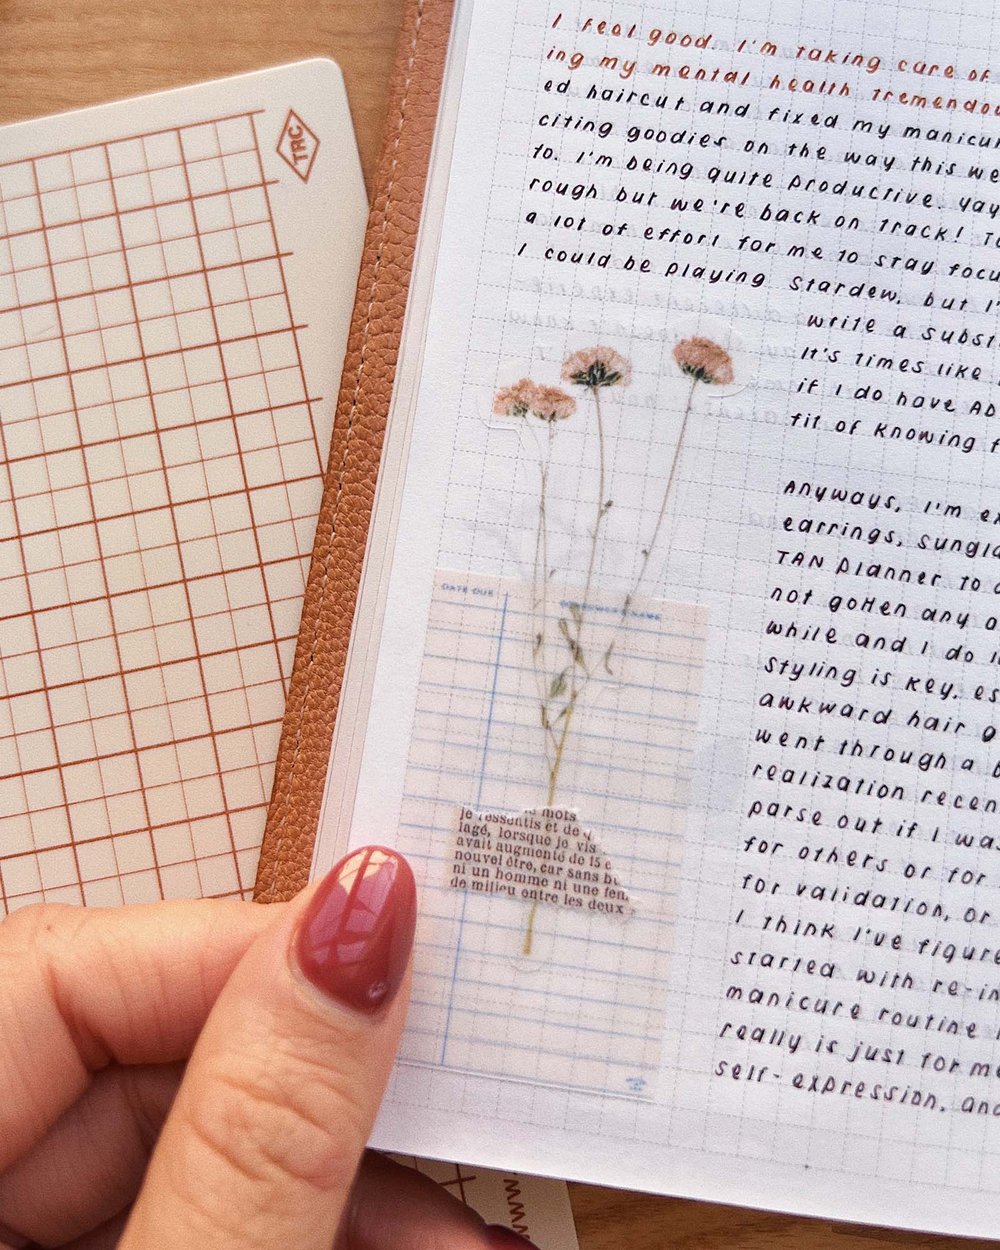 TRC
I feel good. I'm taking care of
ing my mental health tremendou
ed haircut and fixed my manicur
citing goodies on the way this we
to. I'm being quite productive. yay
rough but we're back on track! To
a lot of effort for me to stay focu
I could be playing Stardew, but I'
write a subst
It's times like
if I do have AD
fit of knowing f
DATE DUE
BORROWER'S NAME
je ressentis et de
mots
lagé, lorsque je vis
avait augmenté de 15 c
nouvel être, car sans bu
ni un homme ni une fem
de milieu entre les deux
Anyways, I'm ex
earrings, sungla
TAN planner to
not gotten any a
while and I do
styling is key. es
awkward hair g
went through a b
realization recen
parse out if I was
for others or for
for validation, or
I think I've figure
started with re-in
manicure routine
really is just for me
self-expression, and